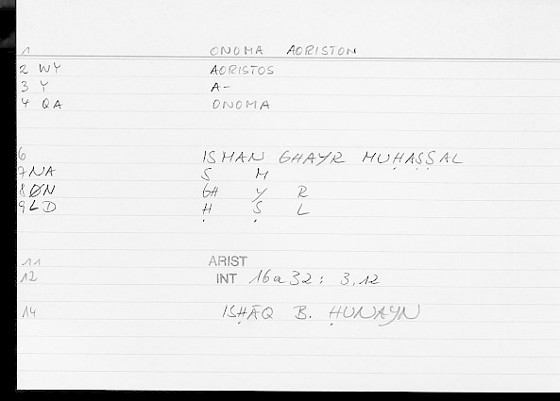 1 ONOMA AORISTON
2 WY AORISTOS
3 Y A-
4 QA ONOMA
6 ISMAN GHAYR MUḤAṢṢAL
7NA S M
8ØN GH Y R
9LD Ḥ Ṣ L
11 ARIST
12 INT 16a32: 3,12
14 ISḤĀQ B. ḤUNAYN